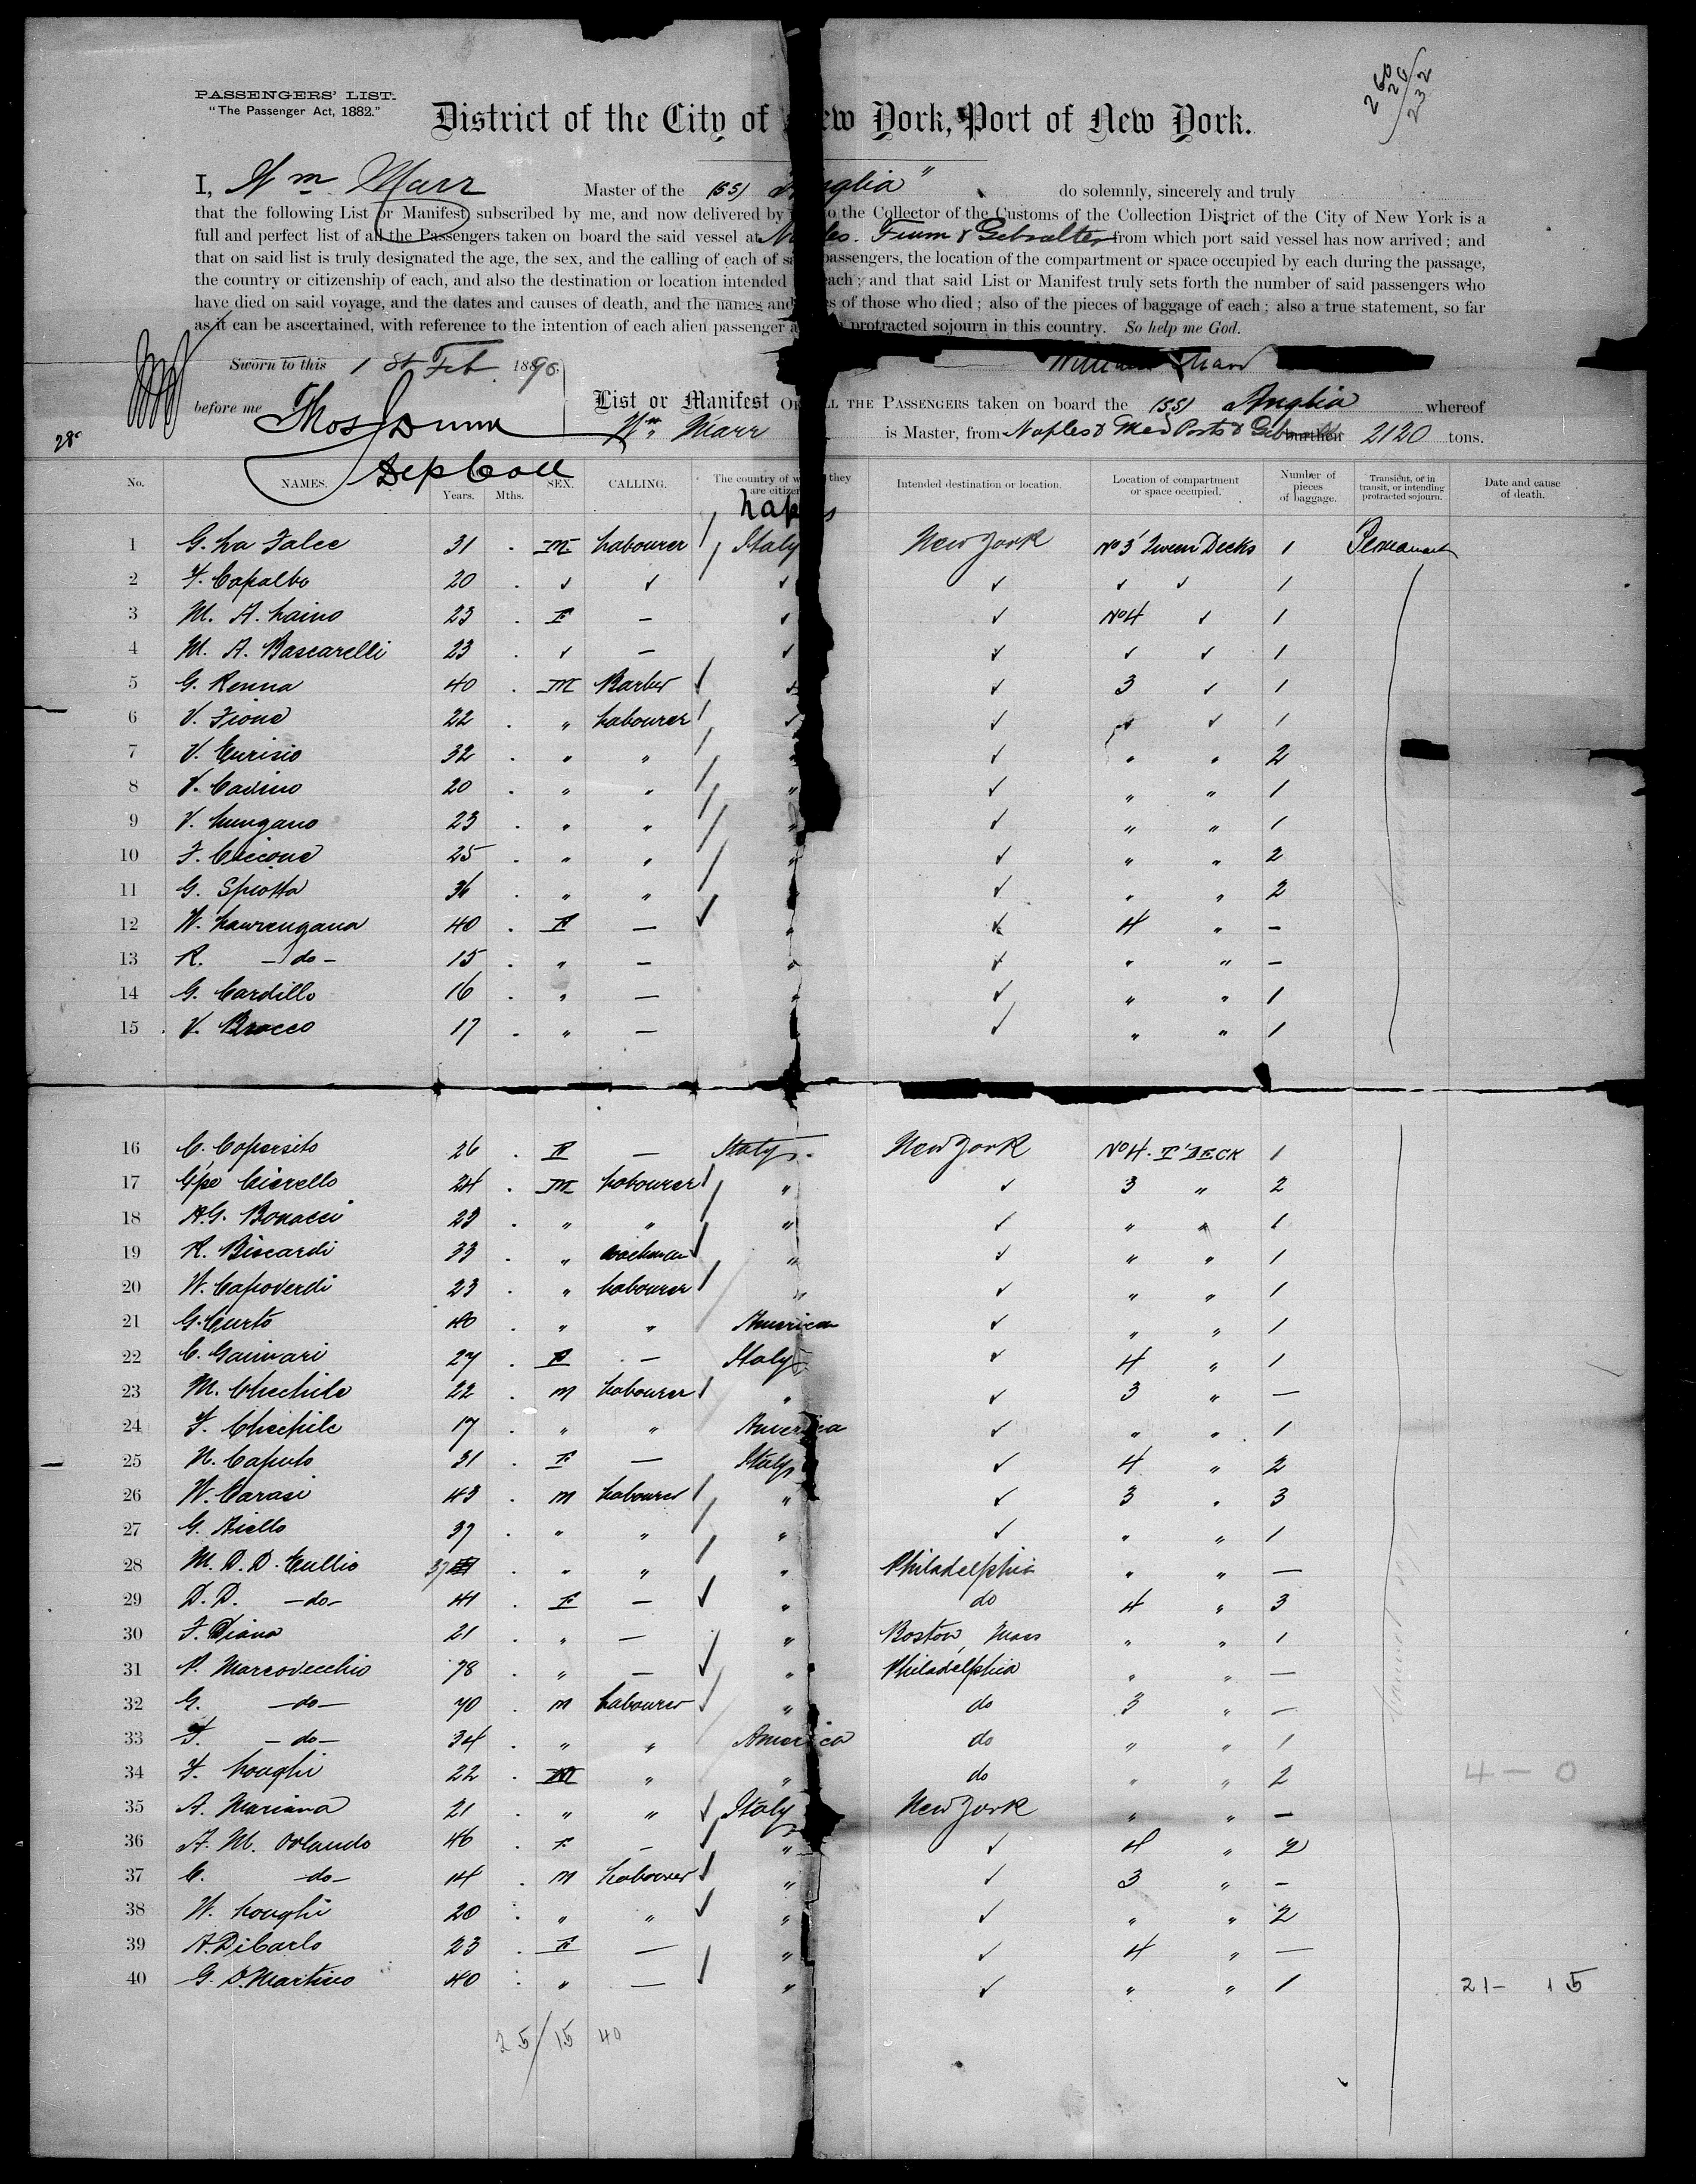 PASSENGERS' LIST.
"The Passenger Act, 1882."
260
26
232
District of the City of New York, Port of New York.
I, Wm Marr Master of the (SS) Anglia" do solemnly, sincerely and truly
that the following List or Manifest, subscribed by me, and now delivered by to the Collector of the Customs of the Collection District of the City of New York is a
full and perfect list of all the Passengers taken on board the said vessel at Naples. Fium & Gibralter from which port said vessel has now arrived; and
that on said list is truly designated the age, the sex, and the calling of each of sa passengers, the location of the compartment or space occupied by each during the passage,
the country or citizenship of each, and also the destination or location intended each; and that said List or Manifest truly sets forth the number of said passengers who
have died on said voyage, and the dates and causes of death, and the names and s of those who died; also of the pieces of baggage of each; also a true statement, so far
as it can be ascertained, with reference to the intention of each alien passenger a protracted sojourn in this country. So help me God.
Sworn to this 1 St Feb. 1890 William Marr
before me Thos Dunn List or Manifest OF ALL THE PASSENGERS taken on board the (SS) Anglia whereof
Wm Marr is Master, from Naples & Med Ports & Gib burthen 2120 tons.
Dep Coll
No. NAMES. Years. Mths. SEX. CALLING. The country of w they are citizen Intended destination or location. Location of compartment or space occupied. Number of pieces of baggage. Transient, or in transit, or intending protracted sojourn. Date and cause of death.
Naples
1 G. La Falce 31 . M Labourer Italy New York No 3 Tween Decks 1 Permanent
2 F. Copalbo 20 . ✓ ✓ ✓ ✓ ✓ ✓ 1
3 M. A. Laino 23 . F — ✓ ✓ No 4 ✓ 1
4 M. A. Bascarelli 23 . ✓ — ✓ ✓ ✓ ✓ 1
5 G. Renna 40 . M Barber ✓ ✓ 3 ✓ 1
6 V. Fione 22 . " Labourer ✓ ✓ ✓ ✓ 1
7 V. Eurisio 32 . " " " ✓ " " 2
8 V. Cavino 20 . " " " ✓ " " 1
9 V. Lungano 23 . " " " ✓ " " 1
10 F. Ciccone 25 . " " " ✓ " " 2
11 G. Spiotta 36 . " " " ✓ " " 2
12 W. Lawrengana 40 . F — " ✓ 4 " —
13 R. — do — 15 . " — " ✓ " " —
14 G. Cardillo 16 . " — " ✓ " " 1
15 V. Brocco 17 . " — " ✓ " " 1
16 C. Copersito 26 . F — Italy New York No 4. T' DECK 1
17 Gpe Cierello 24 . M Labourer " ✓ 3 " 2
18 A.G. Bonacci 23 . " " " ✓ " " 1
19 R. Biscardi 33 . " coachman " ✓ " " 1
20 W. Capoverdi 23 . " Labourer " ✓ " " 1
21 G. Curto 40 . " " American ✓ " " 1
22 C. Gainvari 27 . F — Italy ✓ 4 " 1
23 M. Chechile 22 . M Labourer " ✓ 3 " —
24 F. Chechile 17 . " " America ✓ " " 1
25 N. Caputo 31 . F — Italy ✓ 4 " 2
26 W. Carasi 43 . M Labourer " ✓ 3 " 3
27 G. Aiello 37 . " " " ✓ " " 1
28 M. D. D. Eullio 37 " " " Philadelphia " " —
29 D. D. — do — 41 . F — " do 4 " 3
30 F. Diana 21 . " — " Boston, Mass " " 1
31 P. Marcovecchio 78 . " — " Philadelphia " " —
32 G. — do — 70 . M Labourer " do 3 " —
33 F. — do — 34 . " " America do " " 1
34 F. Longhi 22 . M " " do " " 2 4 — 0
35 A. Mariana 21 . " " Italy New York " " —
36 A. M. Orlando 46 . F — " ✓ 4 " 2
37 C. — do — 14 . M Labourer " ✓ 3 " —
38 W. Longhi 20 . " " " ✓ " " 2
39 A. DiCarlo 23 . F — " ✓ 4 " —
40 G. D. Martino 40 . " — " ✓ " " 1 21 — 15
25/15 40